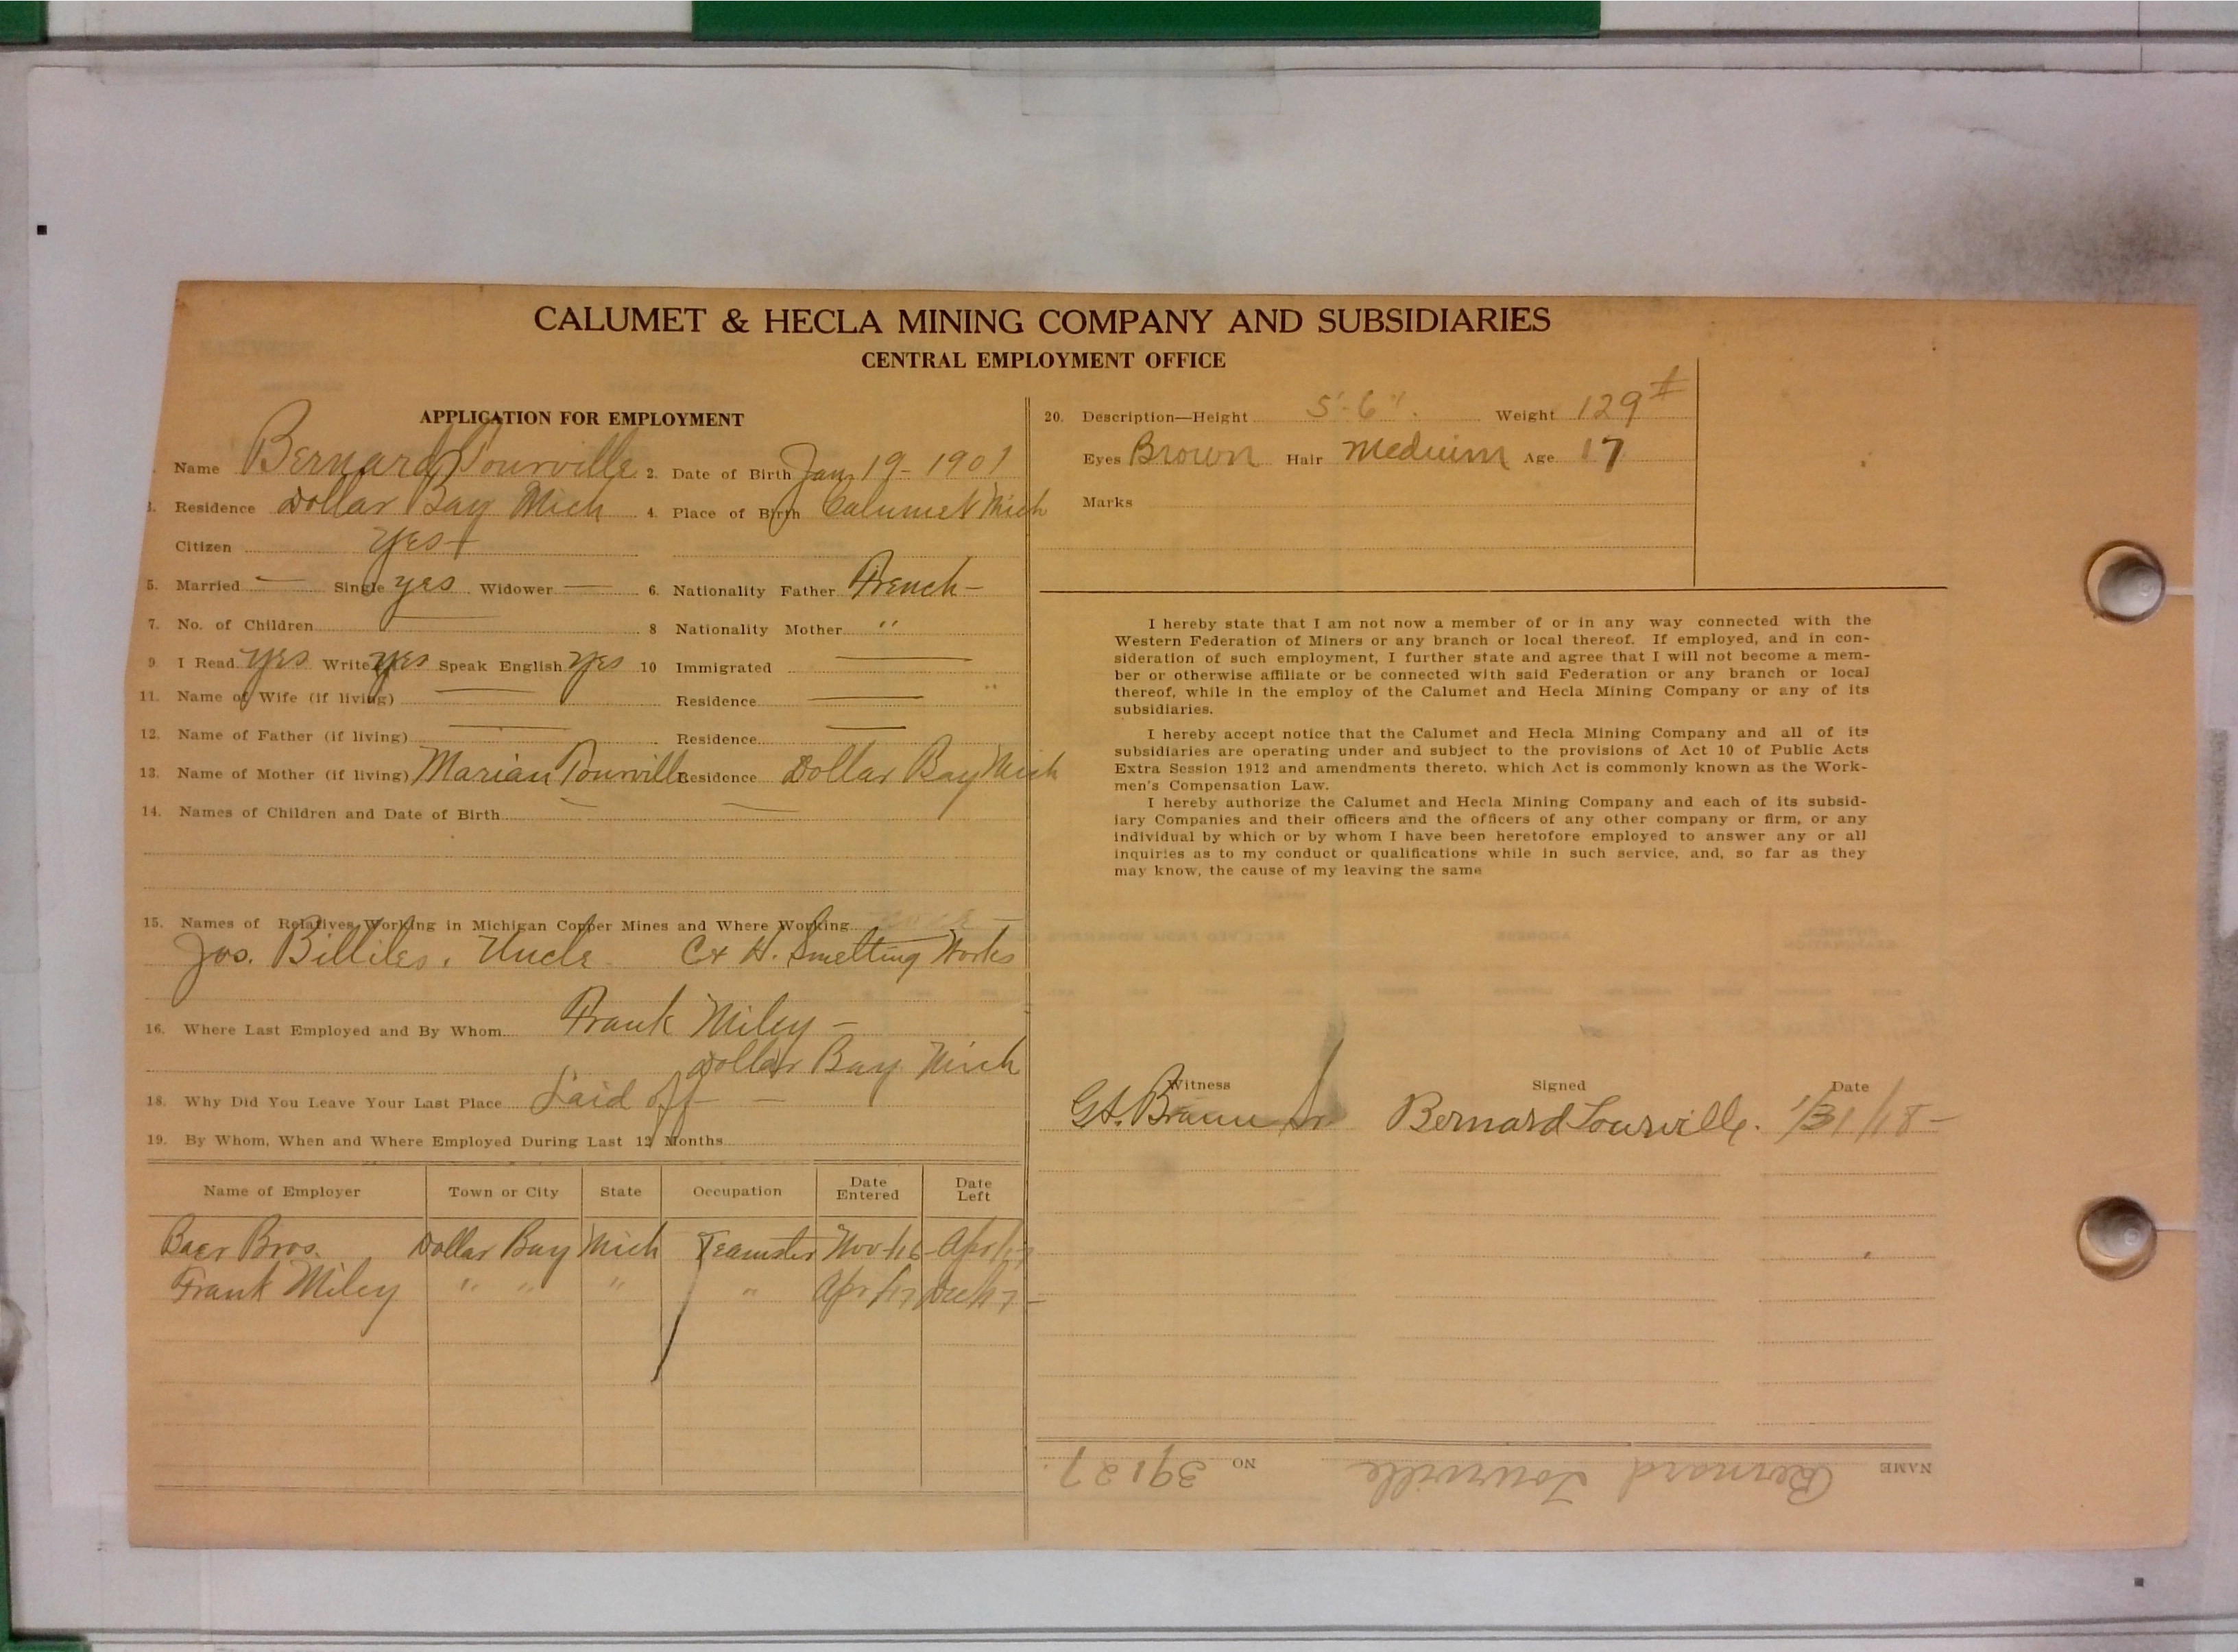 CALUMET & HECLA MINING COMPANY AND SUBSIDIARIES
CENTRAL EMPLOYMENT OFFICE
APPLICATION FOR EMPLOYMENT
Name Bernard Tourville 2. Date of Birth Jan 19 - 1901
3. Residence Dollar Bay Mich 4. Place of Birth Calumet Mich
Citizen Yes
5. Married — Single yes Widower — 6. Nationality Father French -
7. No. of Children — 8 Nationality Mother "
9 I Read yes Write yes Speak English yes 10 Immigrated —
11. Name of Wife (if living) — Residence —
12. Name of Father (if living) — Residence —
13. Name of Mother (if living) Marian Tourville Residence Dollar Bay Mich
14. Names of Children and Date of Birth — —
15. Names of Relatives Working in Michigan Copper Mines and Where Working
Jos. Uncle C + H. Smelting Works
16. Where Last Employed and By Whom Frank Miley -
Dollar Bay Mich
18. Why Did You Leave Your Last Place Laid off -
19. By Whom, When and Where Employed During Last 12 Months
Name of Employer Town or City State Occupation Date Entered Date Left
Baer Bros. Dollar Bay Mich Teamster Nov/16 Apr/17
Frank Miley " " " " Apr/17 Dec/17 -
20. Description—Height 5'-6". Weight 129 #
Eyes Brown Hair Medium Age 17
Marks
I hereby state that I am not now a member of or in any way connected with the
Western Federation of Miners or any branch or local thereof. If employed, and in con-
sideration of such employment, I further state and agree that I will not become a mem-
ber or otherwise affiliate or be connected with said Federation or any branch or local
thereof, while in the employ of the Calumet and Hecla Mining Company or any of its
subsidiaries.
I hereby accept notice that the Calumet and Hecla Mining Company and all of its
subsidiaries are operating under and subject to the provisions of Act 10 of Public Acts
Extra Session 1912 and amendments thereto, which Act is commonly known as the Work-
men's Compensation Law.
I hereby authorize the Calumet and Hecla Mining Company and each of its subsid-
iary Companies and their officers and the officers of any other company or firm, or any
individual by which or by whom I have been heretofore employed to answer any or all
inquiries as to my conduct or qualifications while in such service, and, so far as they
may know, the cause of my leaving the same
Witness Signed Date
Braun Jr Bernard Tourville. 1/31/18 -
NAME Bernard Tourville NO 39127.